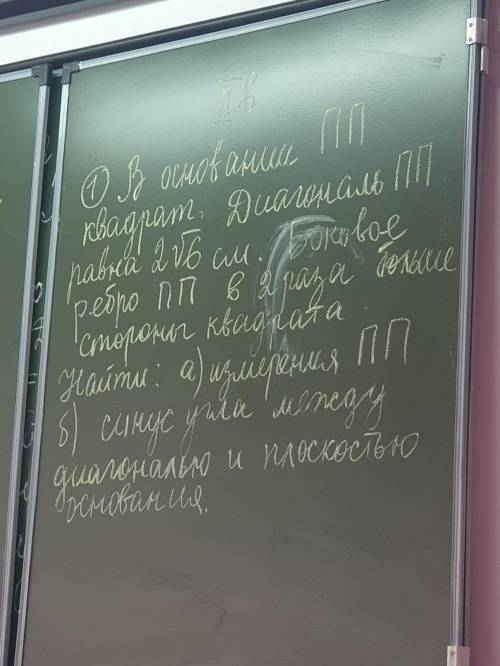 II в
① В основании ПП
квадрат. Диагональ ПП
равна 2√6 см. Боковое
ребро ПП в 2 раза больше
стороны квадрата.
Найти: а) измерения ПП
б) синус угла между
диагональю и плоскостью
основания.